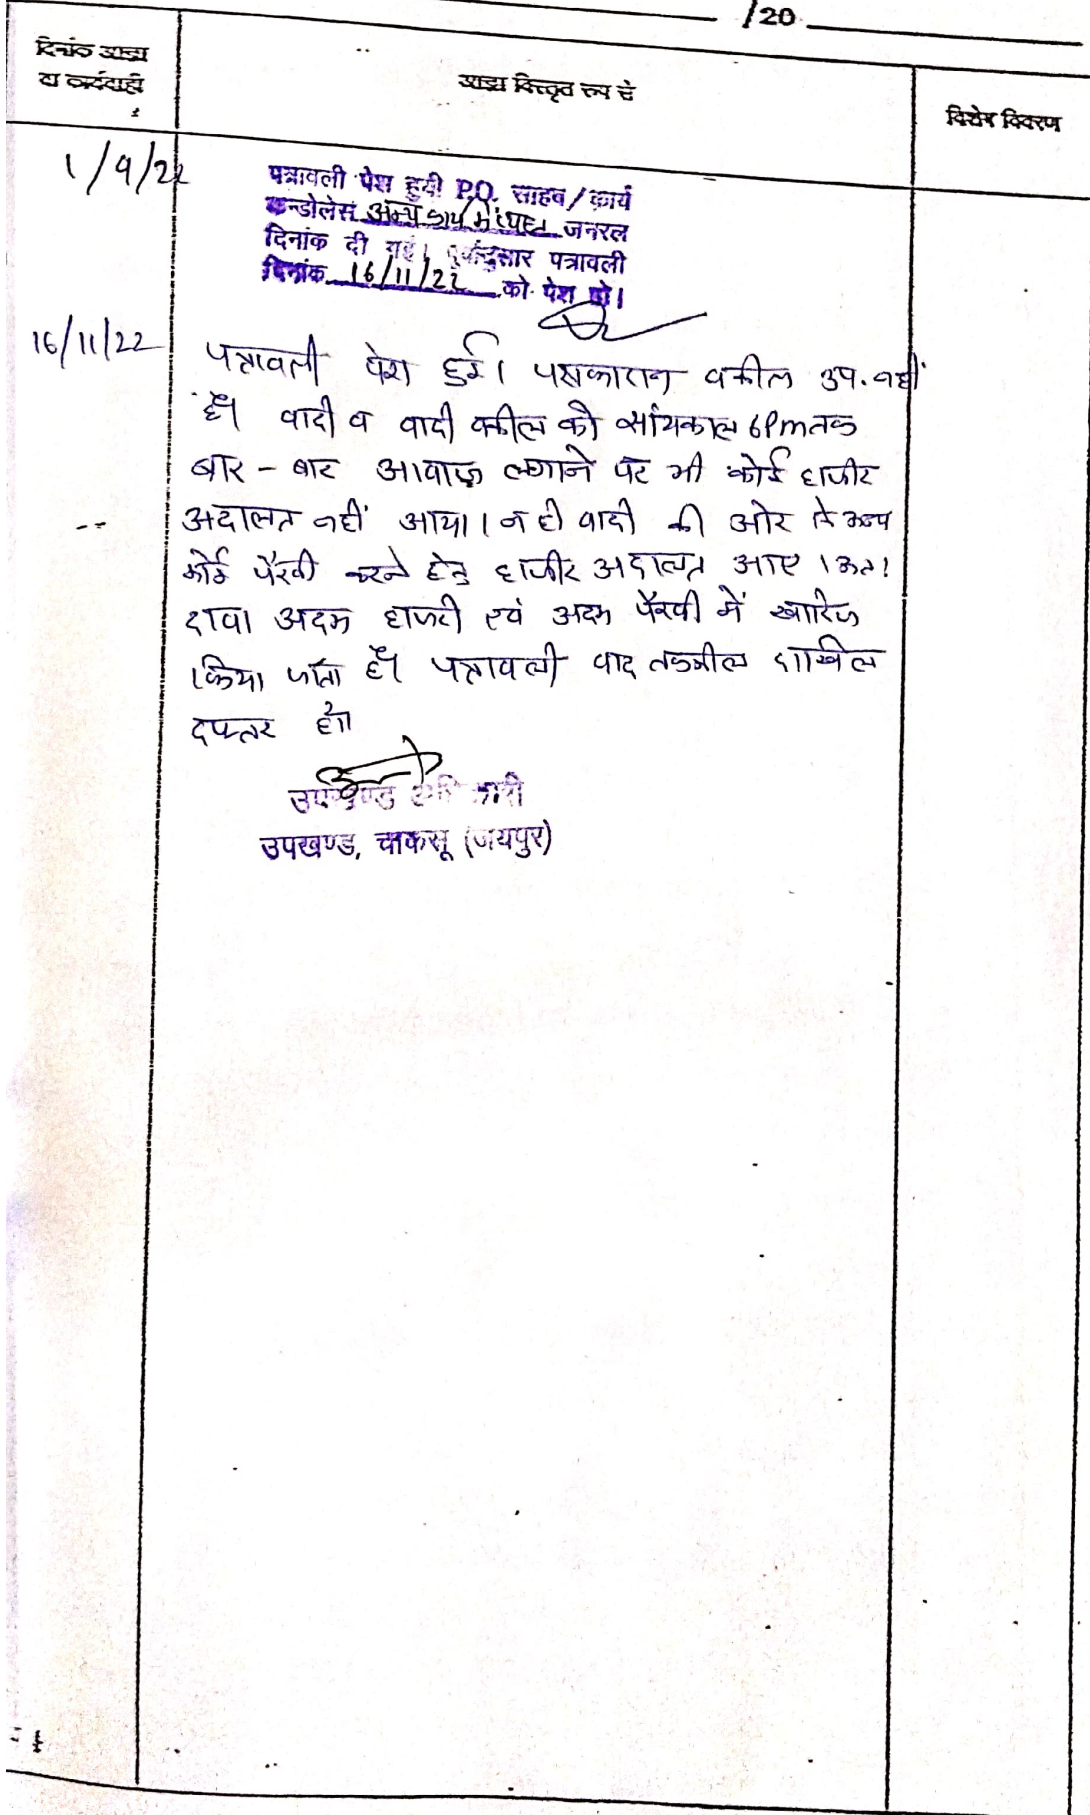 /20
दिनांक आज्ञा
या कार्यवाही
आज्ञा विस्तृत रूप से
विशेष विवरण
1/9/22
पत्रावली पेश हुयी P.O. साहब/कार्य
कन्डोलेंस अन्य कार्य में व्यस्त जनरल
दिनांक दी गई। पूर्वानुसार पत्रावली
दिनांक 16/11/22 को पेश हो।
16/11/22
पत्रावली पेश हुई। पक्षकारान वकील उप. नहीं
है। वादी व वादी वकील को सांयकाल 6Pm तक
बार - बार आवाज लगाने पर भी कोई हाजीर
अदालत नहीं आया। न ही वादी की ओर से अन्य
कोई पैरवी करने हेतु हाजीर अदालत आए। अतः
दावा अदम हाजरी एवं अदम पैरवी में खारिज
किया जाता है। पत्रावली बाद तकमील दाखिल
दफ्तर हो।
उपखण्ड अधिकारी
उपखण्ड, चाकसू (जयपुर)